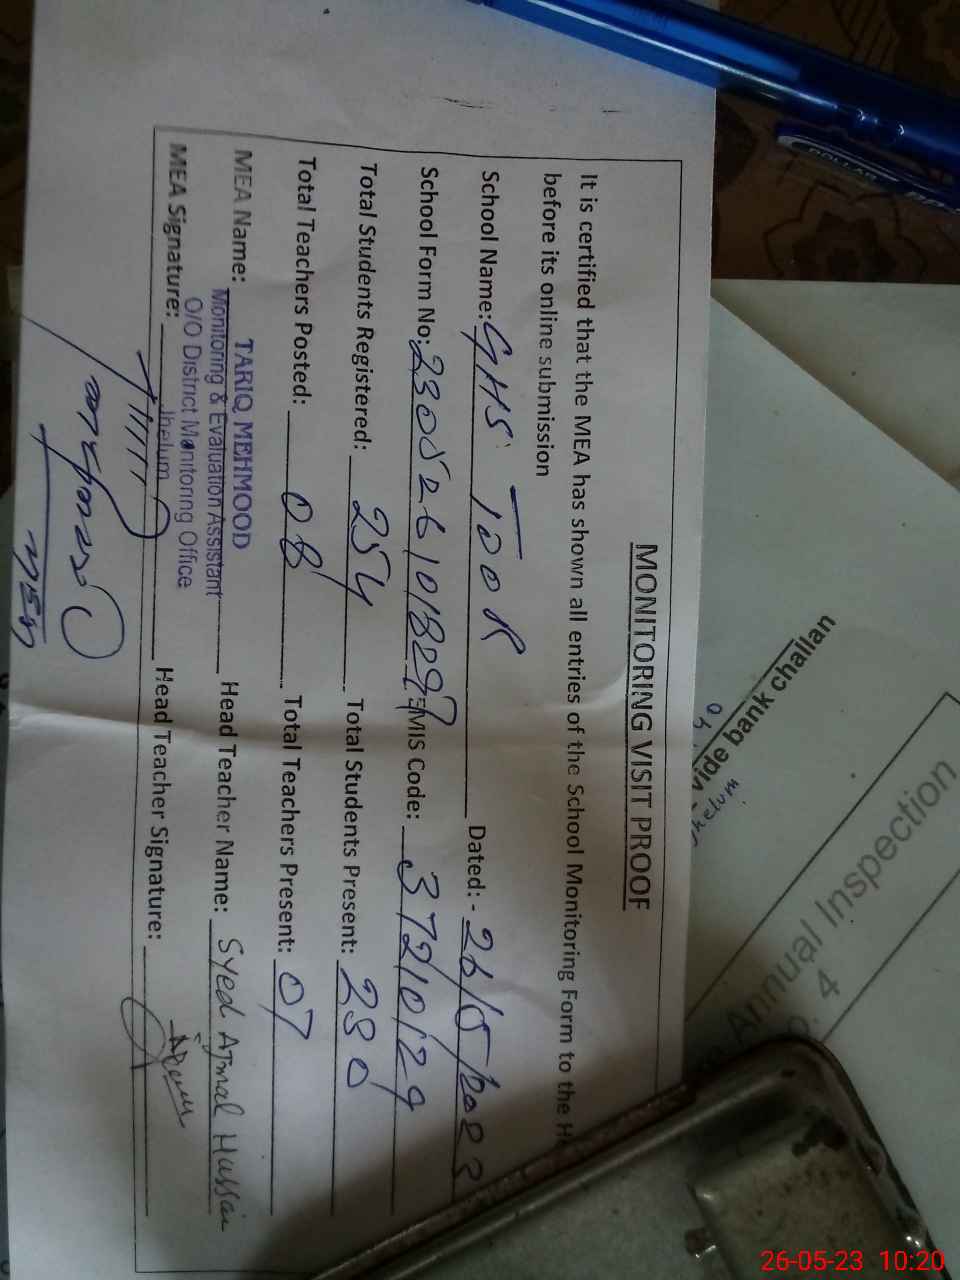 MONITORING VISIT PROOF
It is certified that the MEA has shown all entries of the School Monitoring Form to the
before its online submission
School Name: GHS TOOR Dated: - 26/5/2023
School Form No: 23052610182 EMIS Code: 37210129
Total Students Registered: 254 Total Students Present: 230
Total Teachers Posted: 08 Total Teachers Present: 07
MEA Name: TARIQ MEHMOOD Head Teacher Name: Syed Ajmal Hussain
Monitoring & Evaluation Assistant
O/O District Monitoring Office
Jhelum
MEA Signature: Head Teacher Signature:
vide bank challan
Jhelum
Annual Inspection
4
DOLLAR
26-05-23 10:20